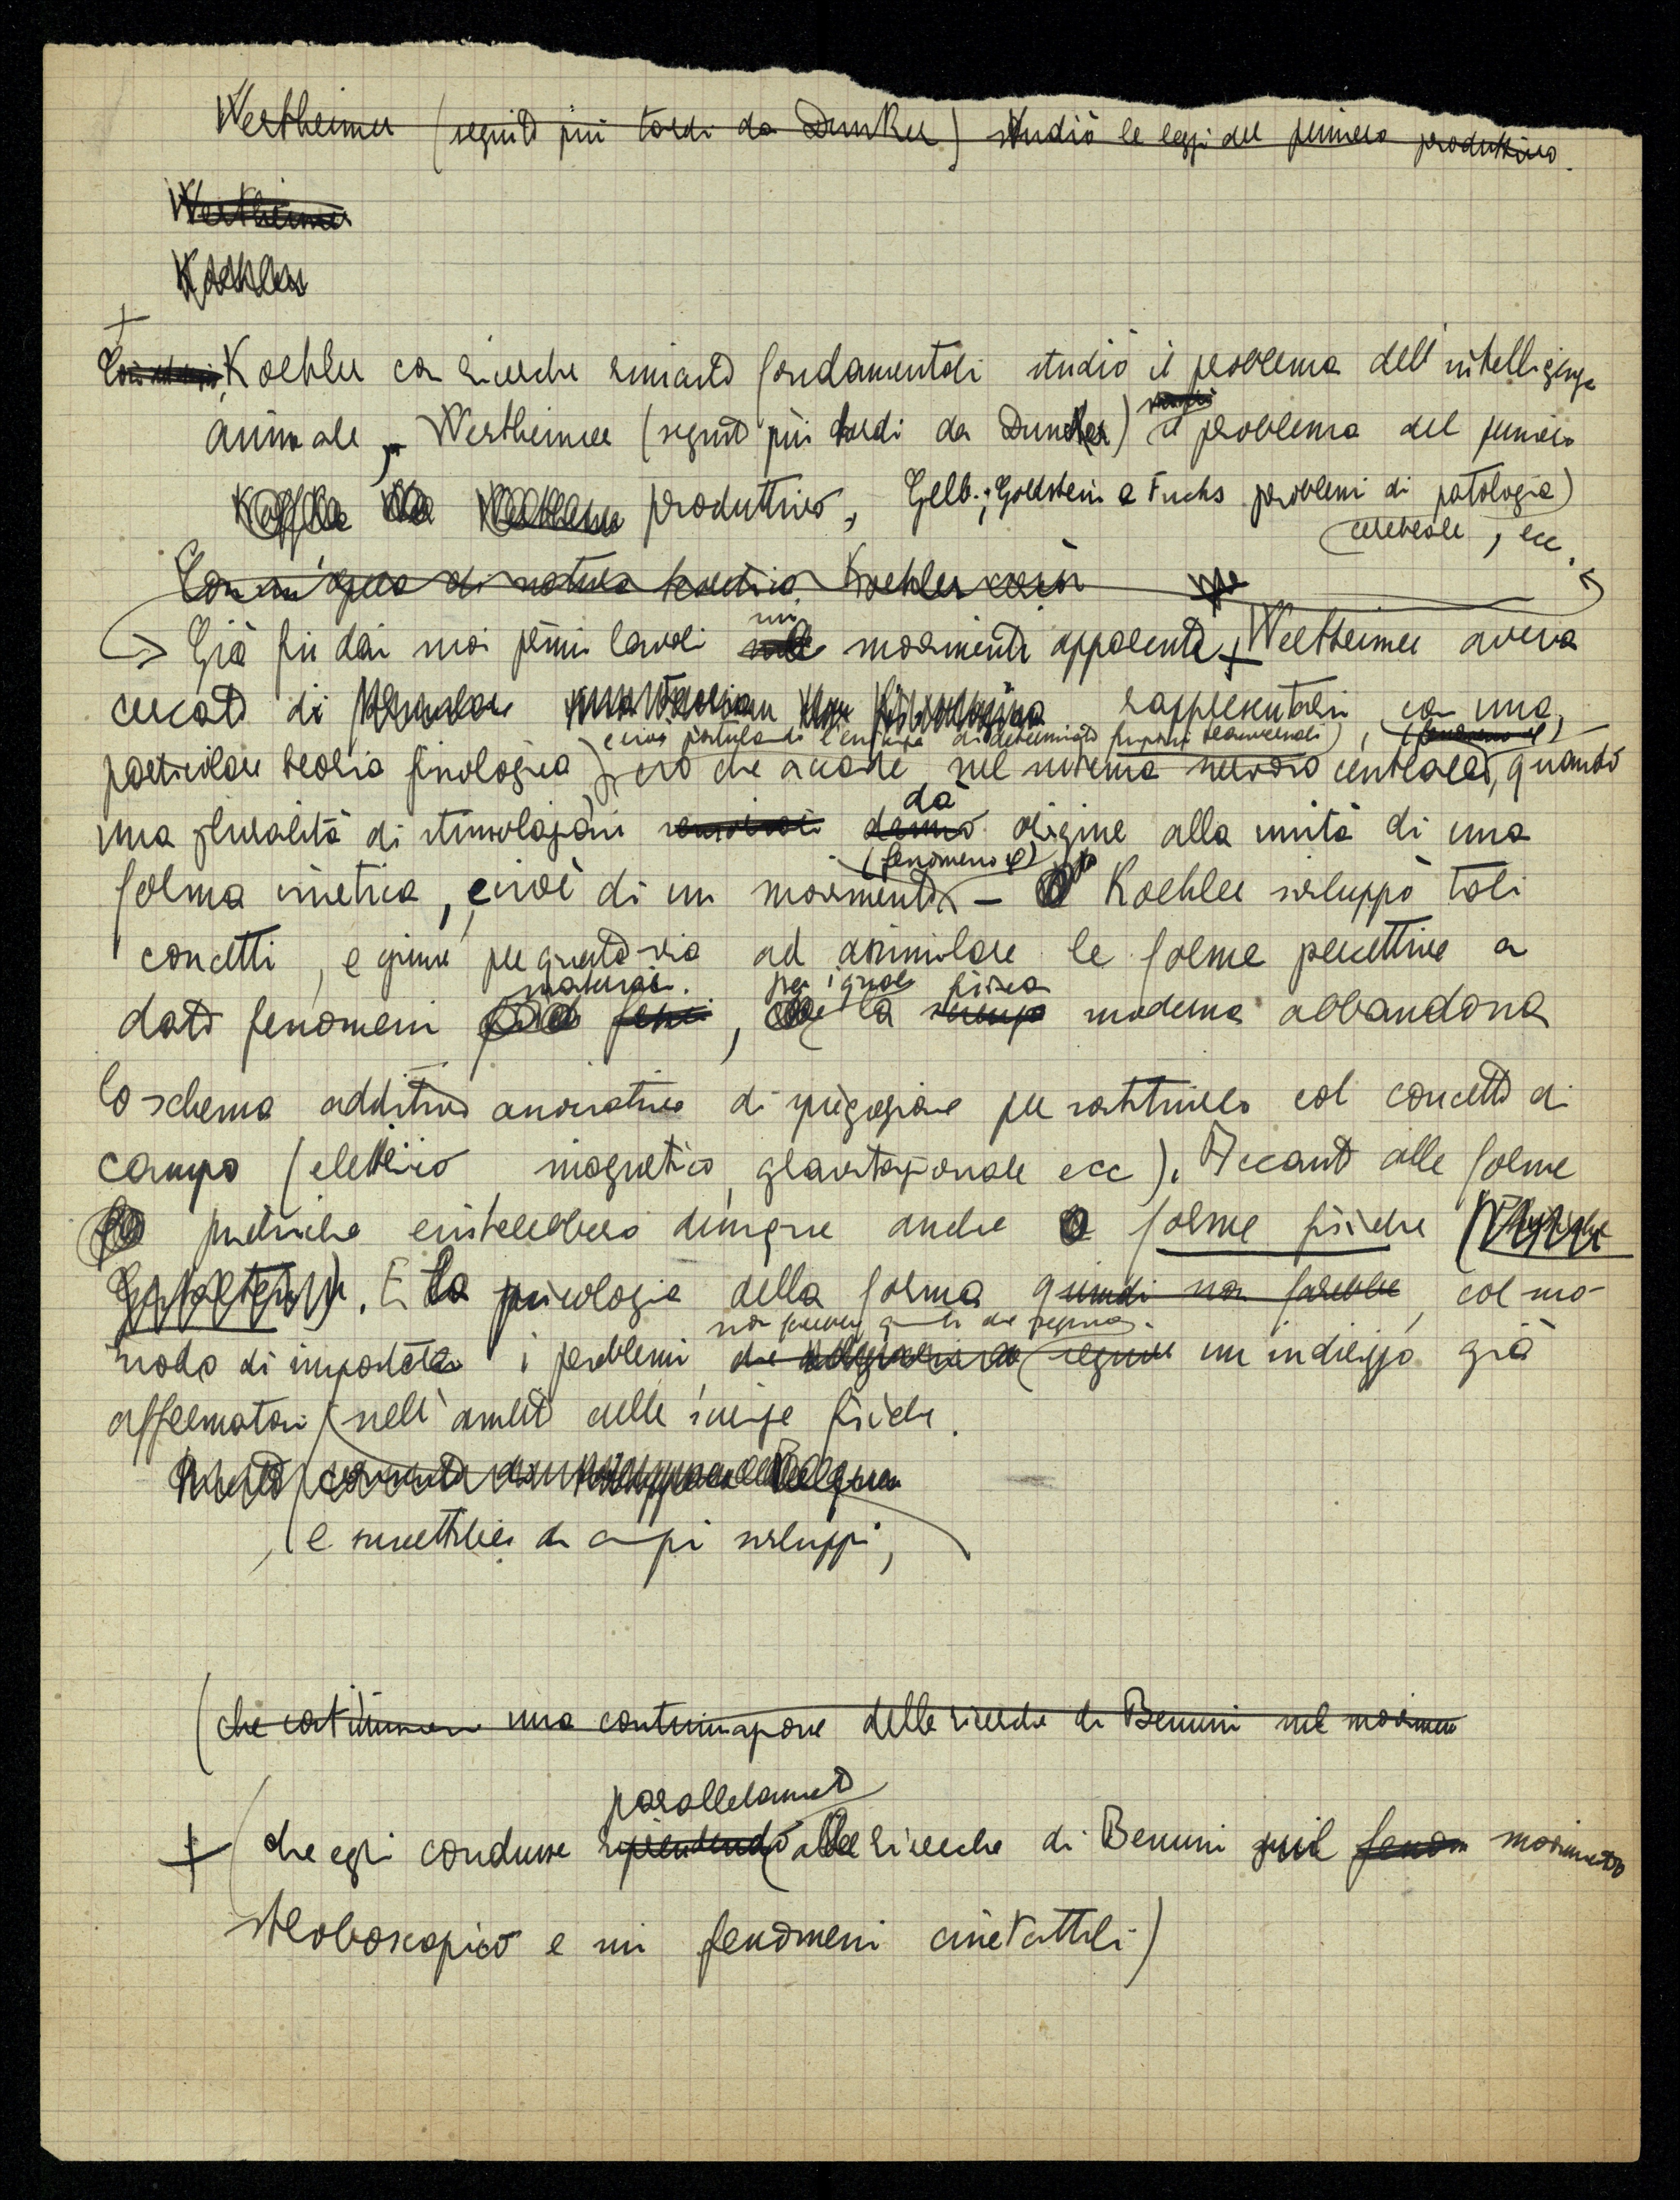 Wertheimer (seguito più tardi da Dunker) studiò le leggi del pensiero produttivo.
Wertheimer
Koehler
+
Koehler con ricerche rimaste fondamentali studiò il problema dell'intelligenza
animale, Wertheimer (seguito più tardi da Duncker) il problema del pensiero
produttivo, Gelb, Goldstein e Fuchs problemi di patologia
cerebrale, ecc.
Con un'opera di natura Koehler
sui
Già fin dai suoi primi lavori movimenti apparenti + Wertheimer aveva
cercato di rappresentarsi con una
(cioè postulando l'esistenza di determinate funzioni trasversali), (fenomeno φ)
particolare teoria fisiologica ciò che accade nel sistema nervoso centrale, quando
dà
una pluralità di stimolazioni danno origine alla unità di una
(fenomeno φ)
forma cinetica, cioè di un movimento – Koehler sviluppò tali
concetti, e giunse per questa via ad assimilare le forme percettive a
naturali. per i quali fisica
dati fenomeni , la scienza moderna abbandona
lo schema additivo associativo di spiegazione per sostituirlo col concetto di
campo (elettrico magnetico, gravitazionale ecc). Accanto alle forme
psichiche esisterebbero dunque anche forme fisiche (Physische
Gestalten). E la psicologia della forma quindi non farebbe, col suo
non farebbe quindi che seguire
modo di impostare i problemi, che seguire un indirizzo già
affermatosi nell'ambito delle scienze fisiche.
e suscettibile di ampi sviluppi,
(che costituiscono una continuazione delle ricerche di Benussi sul movimento
parallelamente
+ (che egli condusse riprendendo alle ricerche di Benussi sul fenom movimento
stroboscopico e sui fenomeni cinetattili)